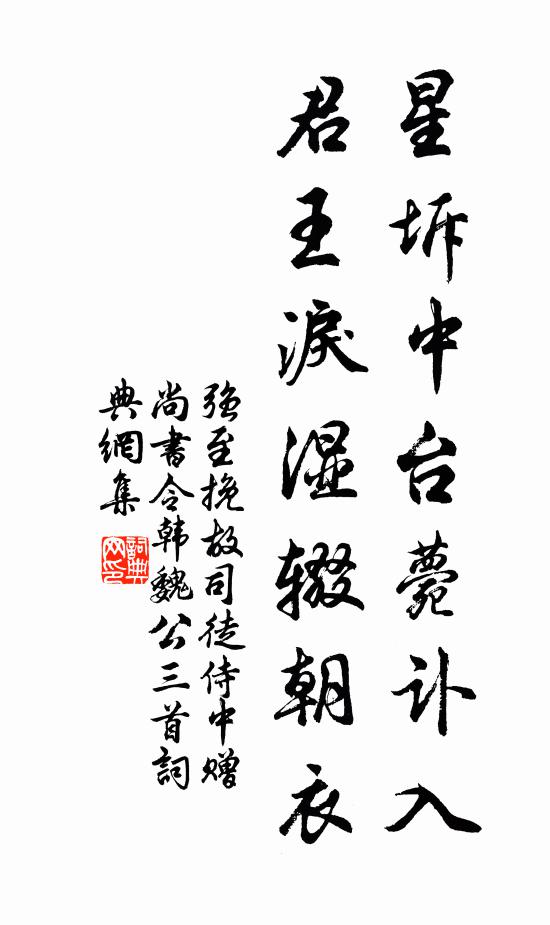 星坼中台薨讣入
君王淚湿辍朝衣
強至挽故司徒侍中赠
尚書令韩魏公三首詞
典網集
詞典網印